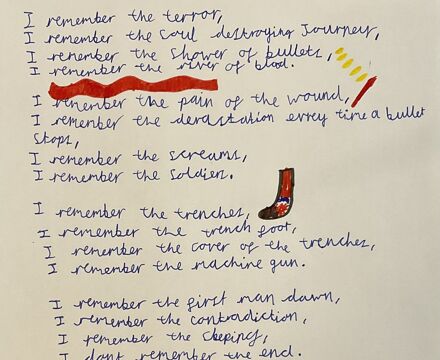 I remember the terror,
I remember the soul destroying Journey,
I remember the shower of bullets,
I remember the river of blood.
I remember the pain of the wound,
I remember the devastation evrey time a bullet
stops,
I remember the screams,
I remember the soldiers.
I remember the trenches,
I remember the trench foot,
I remember the cover of the trenches,
I remember the machine gun.
I remember the first man dawn,
I remember the contradiction,
I remember the
I dont remember the end.